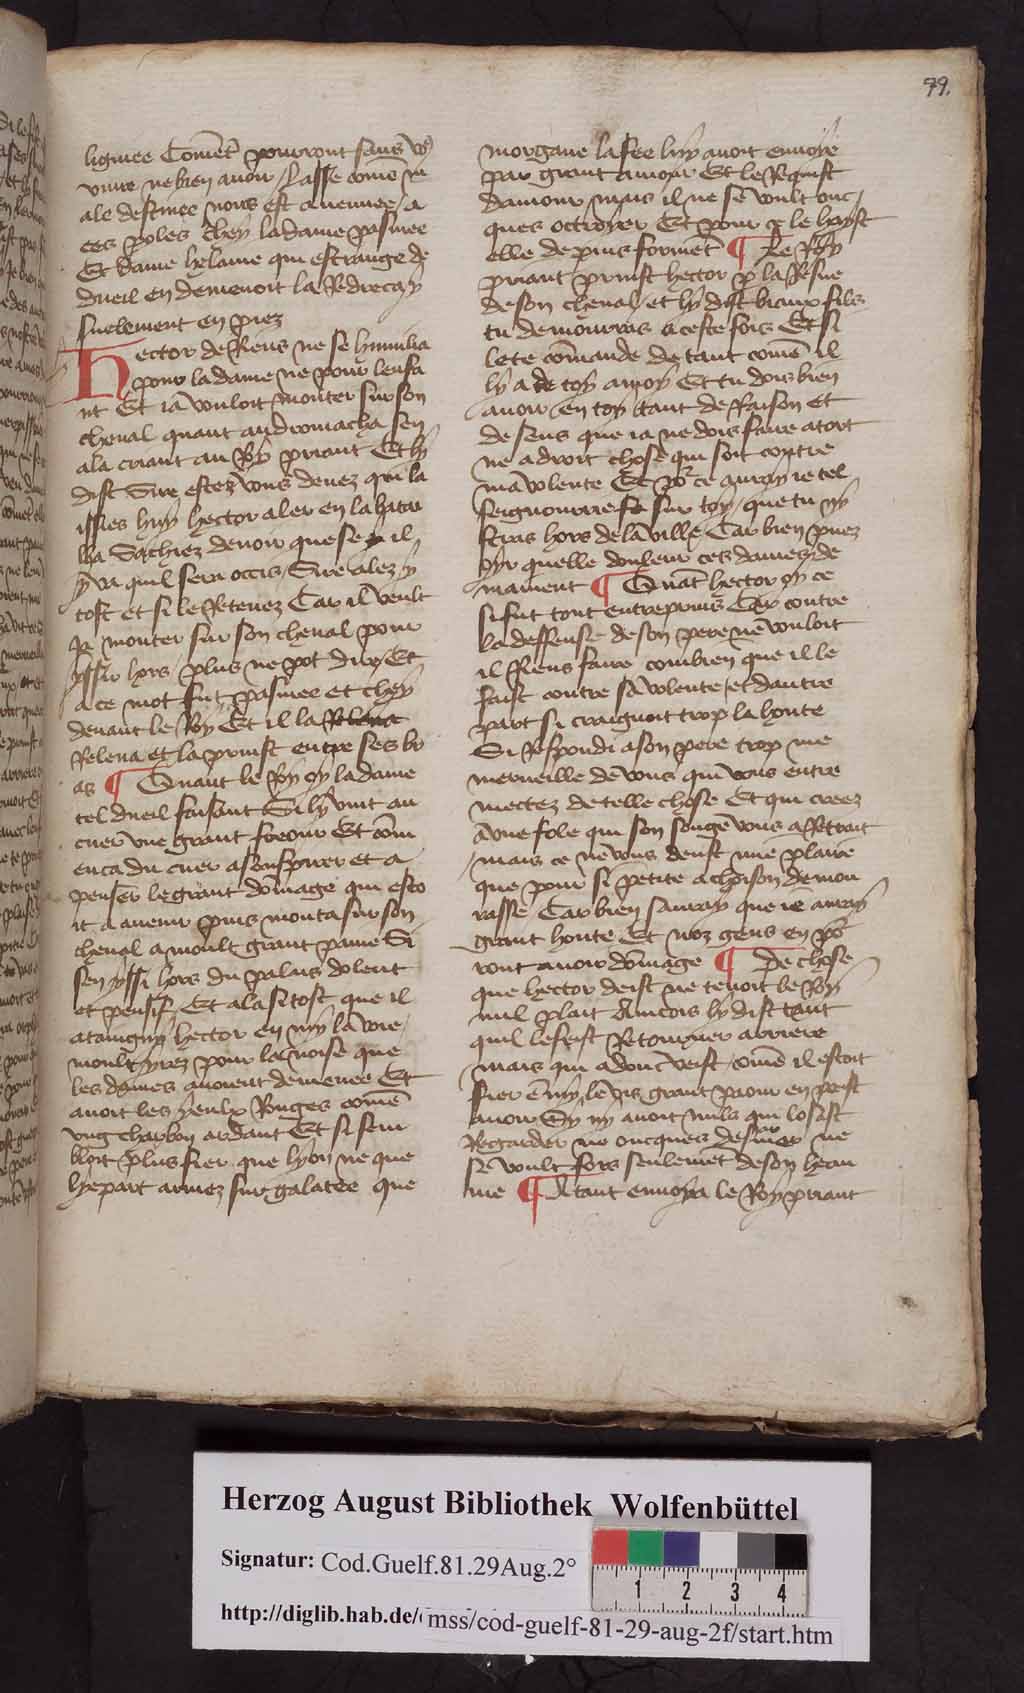 79.
lignee Comēt pourront sans vo9
viure ne bien auoir / Lasse comē m
ale destinee nous est auenue / a
ces poles chey la dame pasmee
Et dame helaine qui estrange de
dueil en demenoit la Redreca y
suelement en piez
Hector de Riens ne se humilia
pour la dame ne pour lenfa
nt Et ia vouloit monter sur son
cheual quant andromacha sen
ala criant au Roy priant Et ly
dist Sire estez vous deuez qui la
issies huy hector aler en la bata
lla Sachiez de voir que se il
y va quil sera occis / Sire alez y
tost et si le Retenez Car il veult
Ja monter sur son cheual pour
yssir hors / plus ne pot dire / Et
a ce mot fut pasmee et chey
deuant le Roy Et il la Releua
Releua et la prinst entre ses br
as ¶ Quant le Roy oy la dame
tel dueil faisant Si ly vint au
cuer vne grant freour Et com
enca du cuer a souspirer et a
penser le grant domage qui esto
it a auenir puis monta sur son
cheual a moult grant paine Si
sen yssi hors du palais dolent
et pensif / Et ala si tost que il
ataingny hector en my la voie /
moult yrez pour la noise que
les dames auoient demenee Et
auoit les yeulx Rouges comē
vng charbon ardant Et si sem
bloit plus fier que lyon ne que
lyepart armez sur galatee que
morgane la fee luy auoit enuoye
par grant amour Et le Requist
damour mais il ne se voult onc /
ques octroyer Et pour ce le hayst
elle de puis formēt ¶ Le Roy
priant prinst hector p la Resne
de son cheual / et ly dist biaux filz
tu demourras a ceste fois Et si
le te cōmande de tant comē il
ly a de toy a moy Et tu dois bien
auoir en toy tant de Raison et
de sens que ia ne dois faire a tort
ne a droit chose qui soit contre
ma volente Et por ce auray ie tel
seignourie sur toy / que tu ny
stras hors de la ville / Car bien puez
oyr quelle douleur ces dames de
mainent ¶ Quāt hector oy ce
si fut tout entreprins Car contre
la deffense de son pere ne vouloit
il Riens faire combien que il le
faist contre sa volente / et dautre
part si craignoit trop la honte
Si Respondi a son pere trop me
merueille de vous qui vous entre
mectez de telle chose Et qui creez
a vne fole qui son songe vous a Retrait
/ mais ce ne vous deust mie plaire
que pour si petite achoison demou
rasse / Car bien sauray que ie auray
grant honte Et noz gens en po9
ront auoir dōmage ¶ De chose
que hector deist ne tenoit le Roy
nul plait Aincois ly dist tant
quil le feist Retourner arriere
/ mais qui adonc veist / comē il estoit
fier ē my le vis grant paour en peist
auoir Sy ny auoit nuls qui losast
Regarder ne oncques desarmer ne
se voult fors seulemēt de son heau
me ¶ A tant enuoya le Roy priant
Herzog August Bibliothek Wolfenbüttel
Signatur: Cod.Guelf.81.29Aug.2°
1 2 3 4
http://diglib.hab.de/ mss/cod-guelf-81-29-aug-2f/start.htm